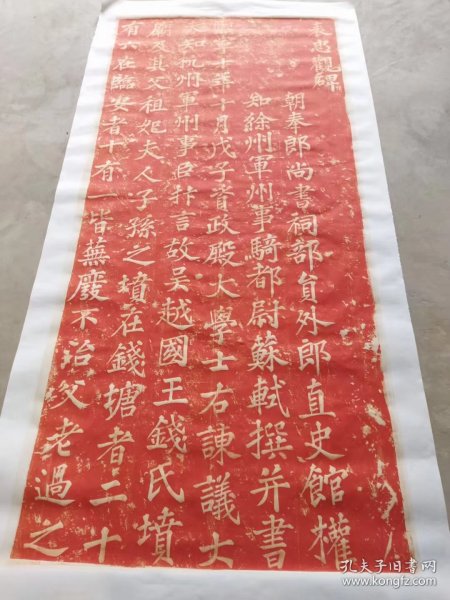 表忠觀碑
朝奉郎尚書祠部員外郎直史館權
知徐州軍州事騎都尉蘇軾撰并書
熙寧十年十月戊子資政殿大學士右諫議大
夫知杭州軍州事臣抃言故吳越國王錢氏墳
廟及其父祖妃夫人子孫之墳在錢塘者二十
有六在臨安者十有一皆蕪廢不治父老過之
孔夫子旧书网
www.kongfz.com